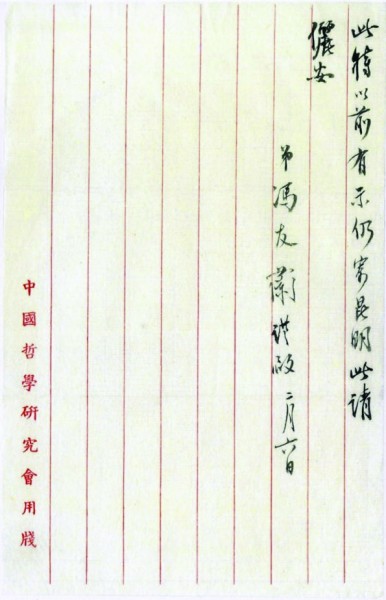 此時以前有示仍寄昆明此請
儷安
弟馮友蘭謹啟 二月六日
中國哲學研究會用牋